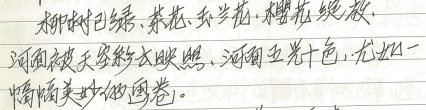 柳树已绿、茶花、玉兰花、樱花绽放、
河面被天空彩云映照、河面五光十色,尤如一
幅幅美妙的画卷。